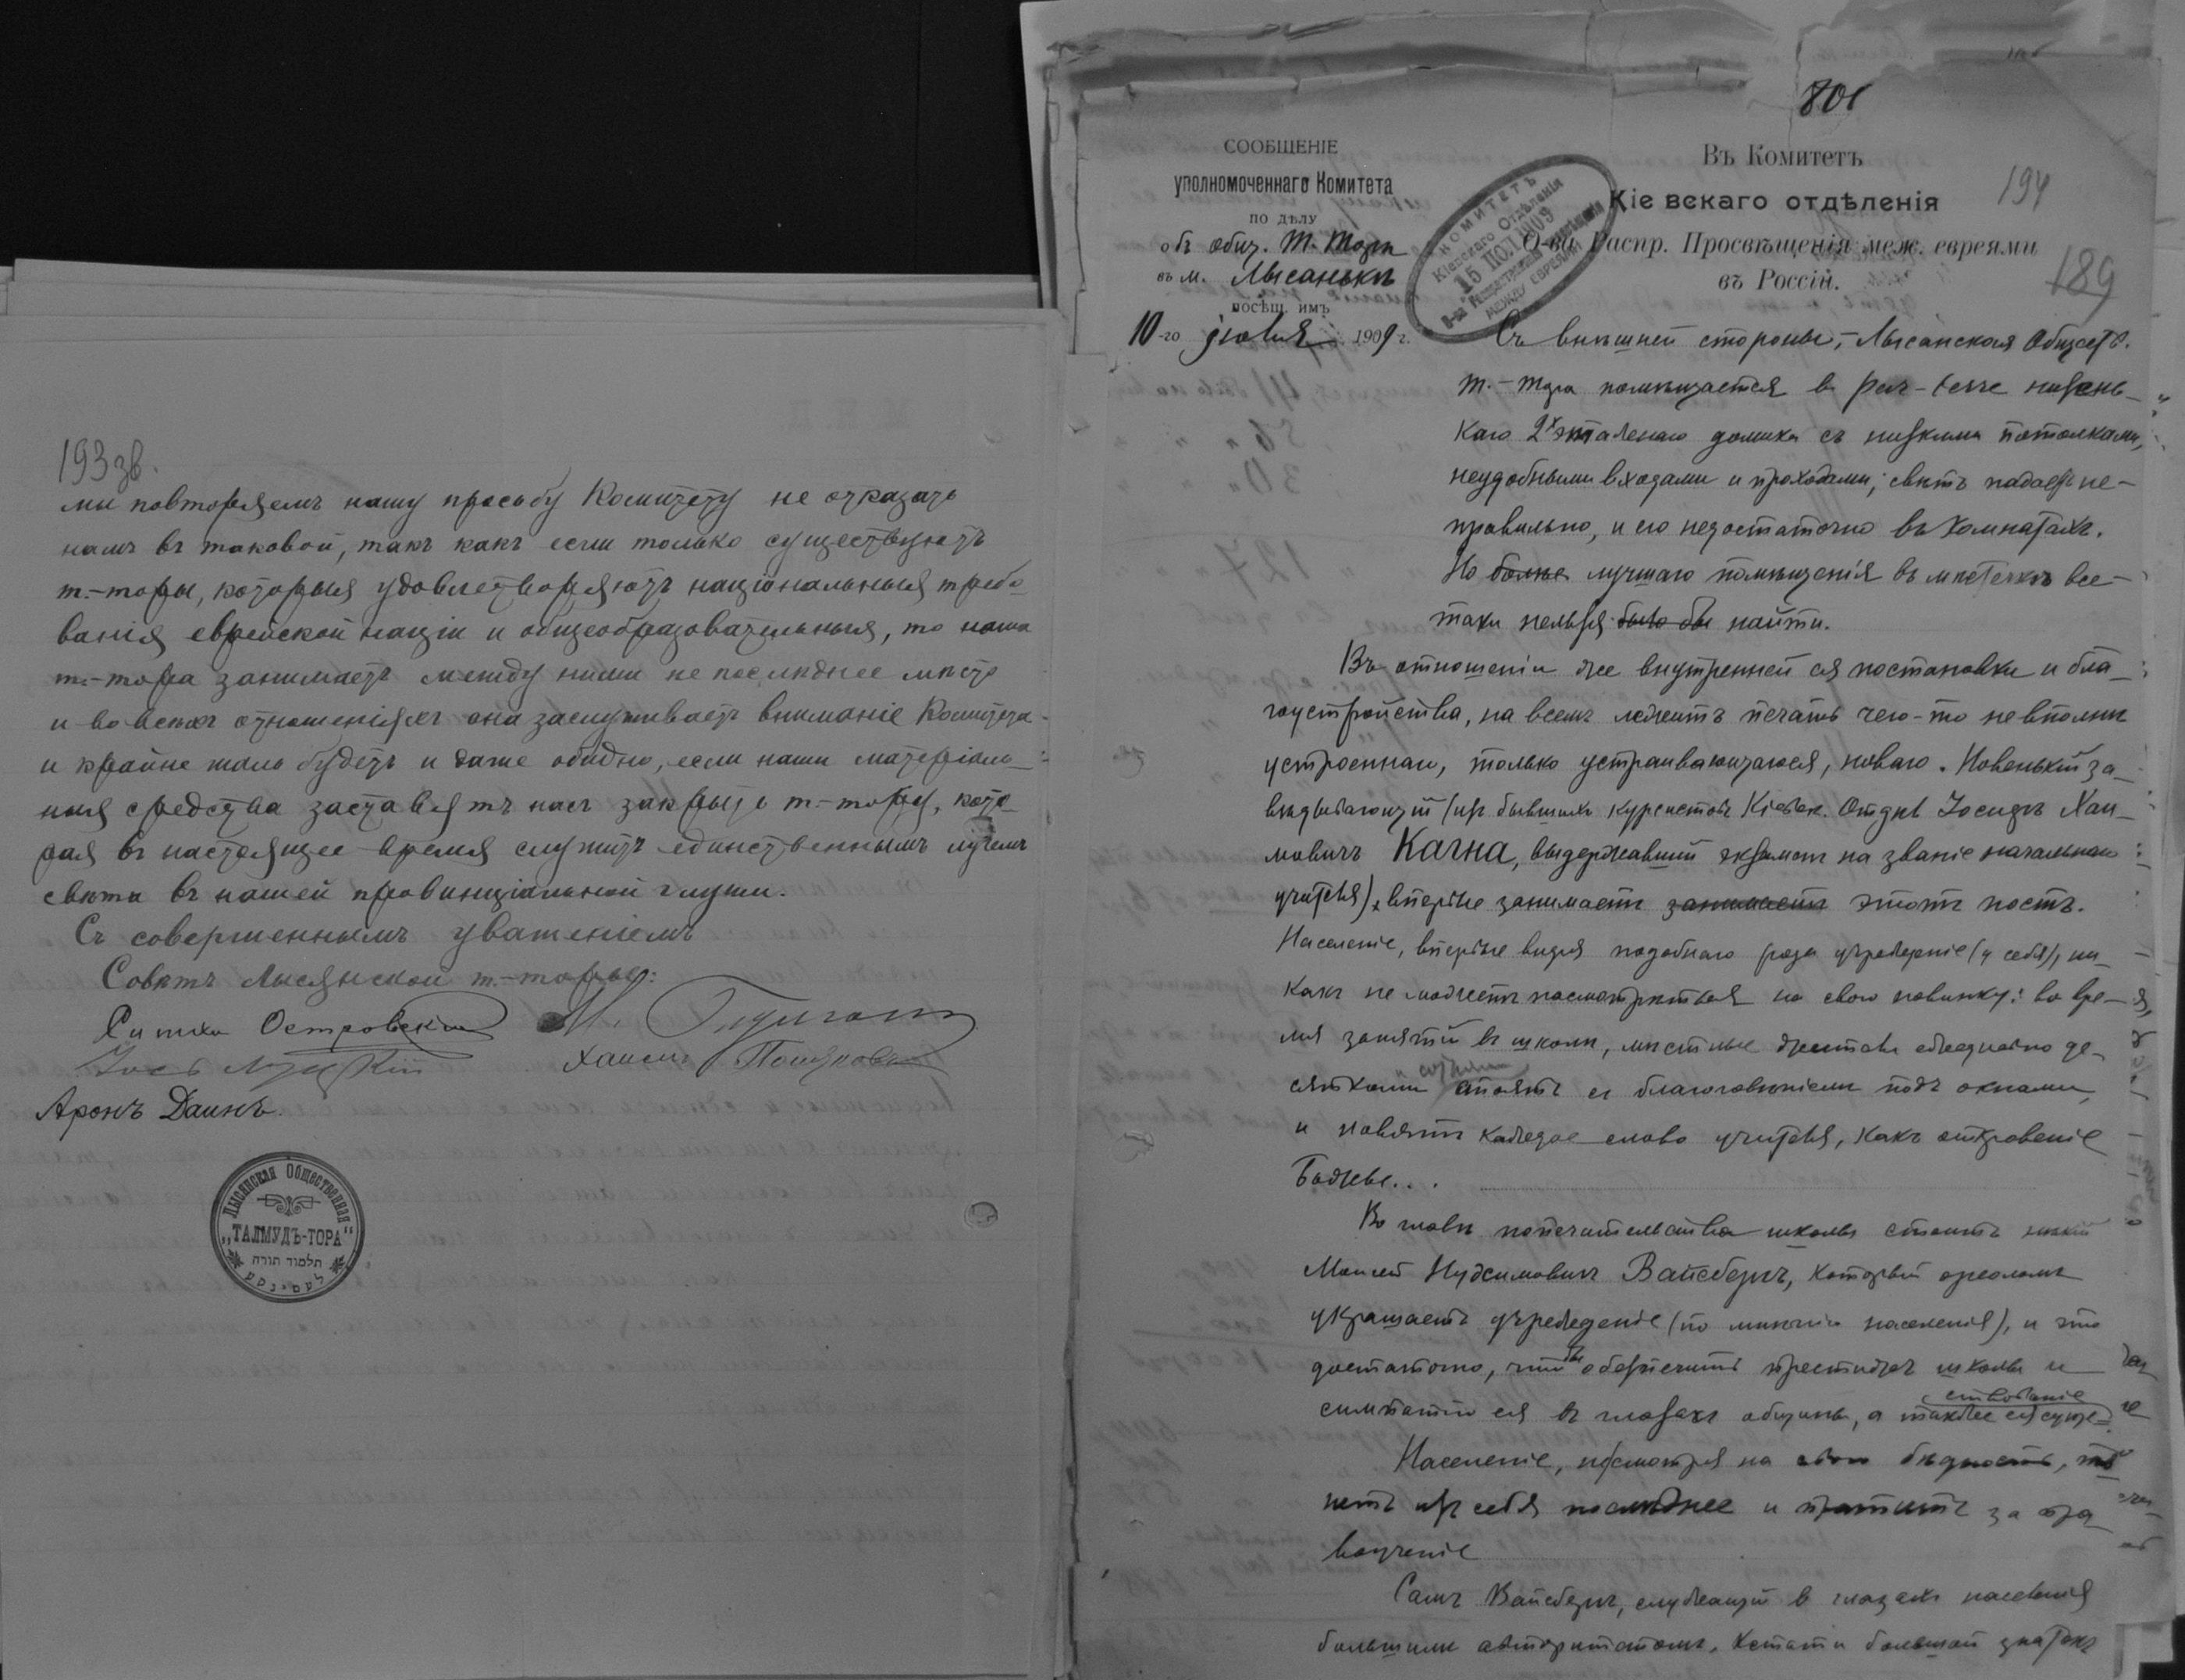 193 зв.
мы повторяемъ нашу просьбу Комитету не отказать
намъ въ таковой, такъ какъ если только существуютъ
т.-торы, которыя удовлетворяютъ національныя требо
ванія еврейской націи и общеобразовательныя, то наша
т.-тора занимаетъ между ними не послѣднее мѣсто
и во всѣхъ отношеніяхъ она заслуживаетъ вниманіе Комитета
и крайне жаль будетъ и даже обидно, если наши матеріаль-
ныя средства заставятъ насъ закрыть т-тору, кото-
рая въ настоящее время служитъ единственнымъ лучемъ
свѣта въ нашей провинціальной глуши.
Съ совершеннымъ уваженіемъ
Совѣтъ Лысянской т.-торы:
Островскій
Хаимъ
Аронъ Даинъ.
Лысянская Общественная
„ТАЛМУДЪ-ТОРА“
תלמוד תורה
801
СООБЩЕНІЕ
уполномоченнаго Комитета
по дѣлу
объ общ. Т. Торы
въ м. Лысанькѣ
посѣщ. имъ
10-го іюля 1909 г.
КОМИТЕТЪ
Кіевскаго Отдѣленія
15 ІЮЛ 1909
МЕЖДУ ЕВРЕЯМИ
Въ Комитетъ
Кіевскаго отдѣленія
О-ва Распр. Просвѣщенія меж. евреями
въ Россіи.
194
189
Съ внѣшней стороны, Лысанская Обществ.
Т.-Тора помѣщается въ низень-
каго 2х этажнаго домика съ низкими потолками,
неудобными входами и проходами; свѣтъ падаетъ не-
правильно, и его недостаточно въ комнатахъ.
Но болѣе лучшаго помѣщенія въ мѣстечкѣ все-
таки нельзя было бы найти.
Въ отношеніи же внутренней ея постановки и бла-
гоустройства, на всемъ лежитъ печать чего-то не вполнѣ
устроеннаго, только устраивающагося, новаго. Новенькій за-
вѣдывающій (изъ бывшихъ курсистовъ Кіевск. Отдѣл Іосифъ Хаи-
мовичъ Кагна, выдержавшій экзаменъ на званіе начальнаго
учителя), впервые занимаетъ занимаетъ этотъ постъ.
Населеніе, впервые видя подобнаго рода учрежденіе (у себя), ни-
какъ не можетъ насмотрѣться на свою новинку: во вре-
мя занятій въ школѣ, мѣстные жители ежедневно де-
сятками и сотнями стоятъ съ благоговѣніемъ подъ окнами,
и ловятъ каждое слово учителя, какъ откровеніе
Божье...
Во главѣ попечительства школы стоитъ нѣкій
Моисей Вайсбергъ, который ореоломъ
украшаетъ учрежденіе (по мнѣнію населенія), и это
достаточно, чтобы обезпечить престижъ школы и
симпатіи ея въ глазахъ общины, а также ея суще-
ствованіе
Населеніе, несмотря на свою бѣдность,
нетъ изъ себя послѣднее и платитъ за пра-
воученіе
Самъ Вайсбергъ, служащій въ глазахъ населенія
большимъ авторитетомъ, кстати большой знатокъ